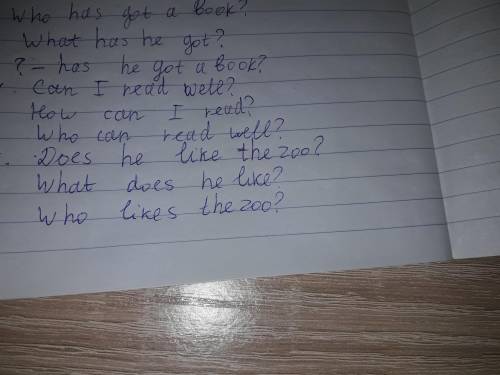 Who has got a book?
What has he got?
? - has he got a book?
Can I read well?
How can I read?
Who can read well?
Does he like the zoo?
What does he like?
Who likes the zoo?